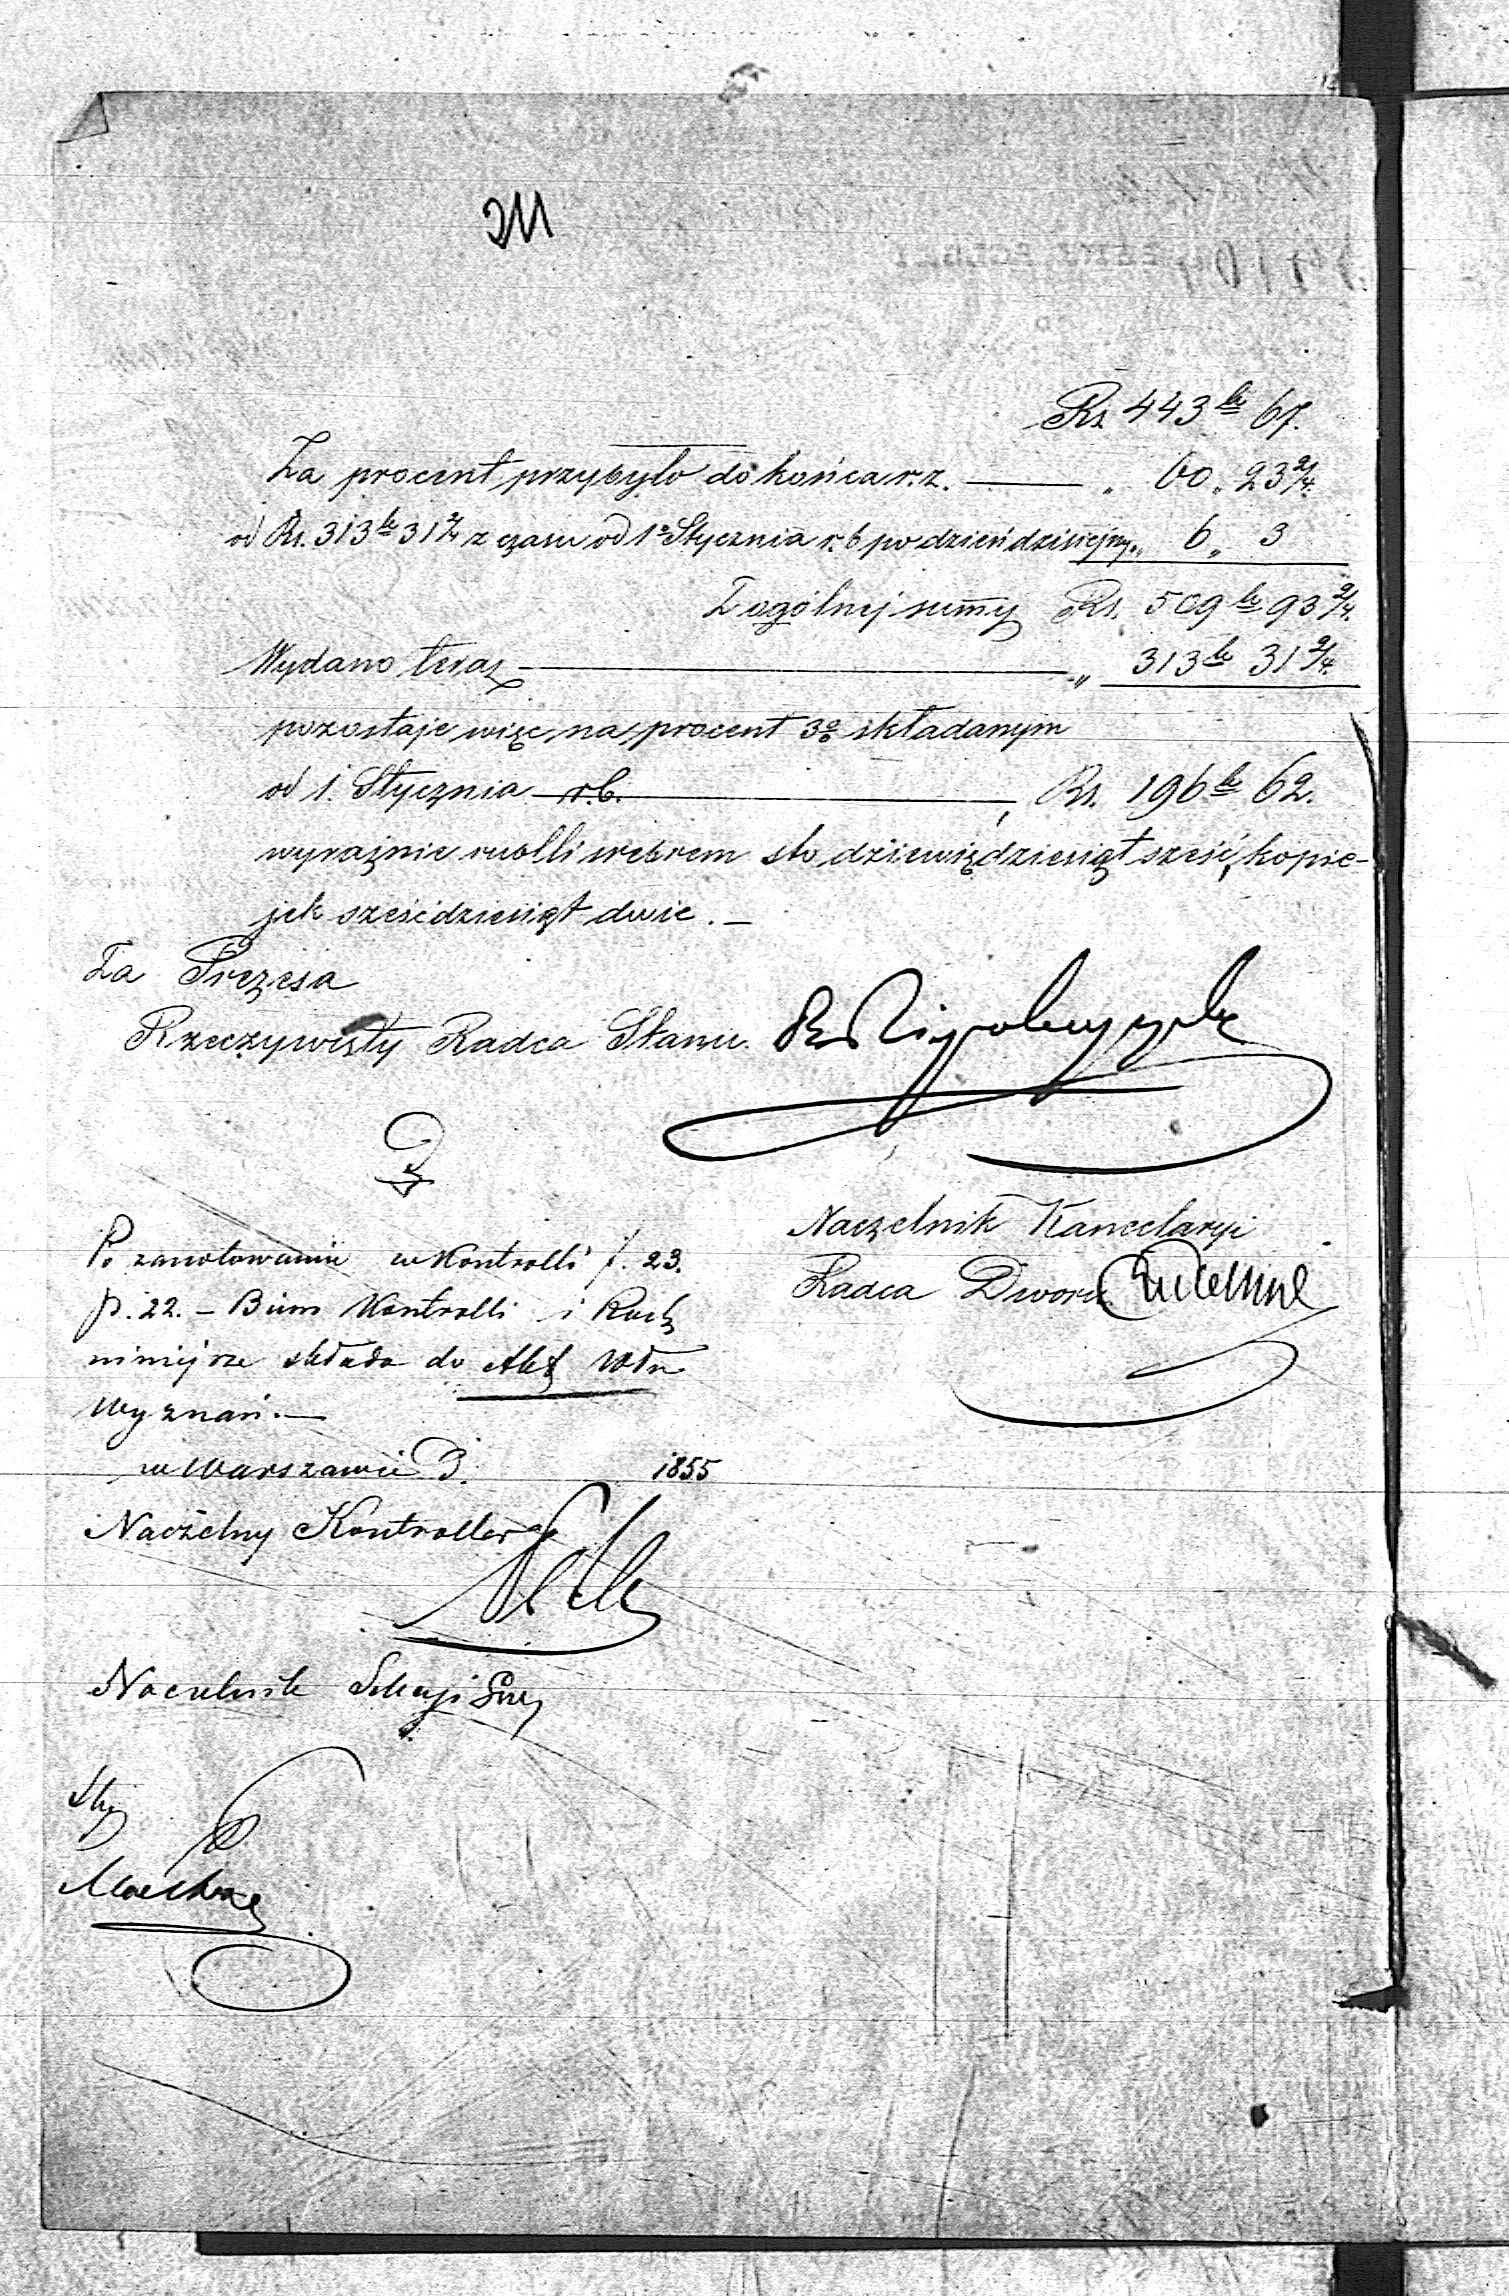 Rs. 443 k. 67.
Za procent przybyło do końca r. z. — „ 60 „ 23 2/4.
od Rs. 313 k. 31 2/4 z czasu od 1o Stycznia r. b. po dzień dzisiejszy „ 6 „ 3
Z ogólnej summy Rs. 509 k. 93 2/4.
Wydano teraz — „ 313 k. 31 2/4.
pozostaje więc na procent 3% składanym
od 1. Stycznia r. b. — Rs. 196 k. 62.
wyraźnie rubli srebrem sto dziewięćdziesiąt sześć, kopie-
jek sześćdziesiąt dwie. —
Za Prezesa
Rzeczywisty Radca Stanu
Naczelnik Kancelaryi
Radca Dworu
Po zanotowaniu w Kontrolli f. 23.
p. 22. — Biuro Kontrolli i Rach
niniejsze składa do Akt
Wyznań. —
w Warszawie D. 1855
Naczelny Kontroller
Naczelnik Sekcyi